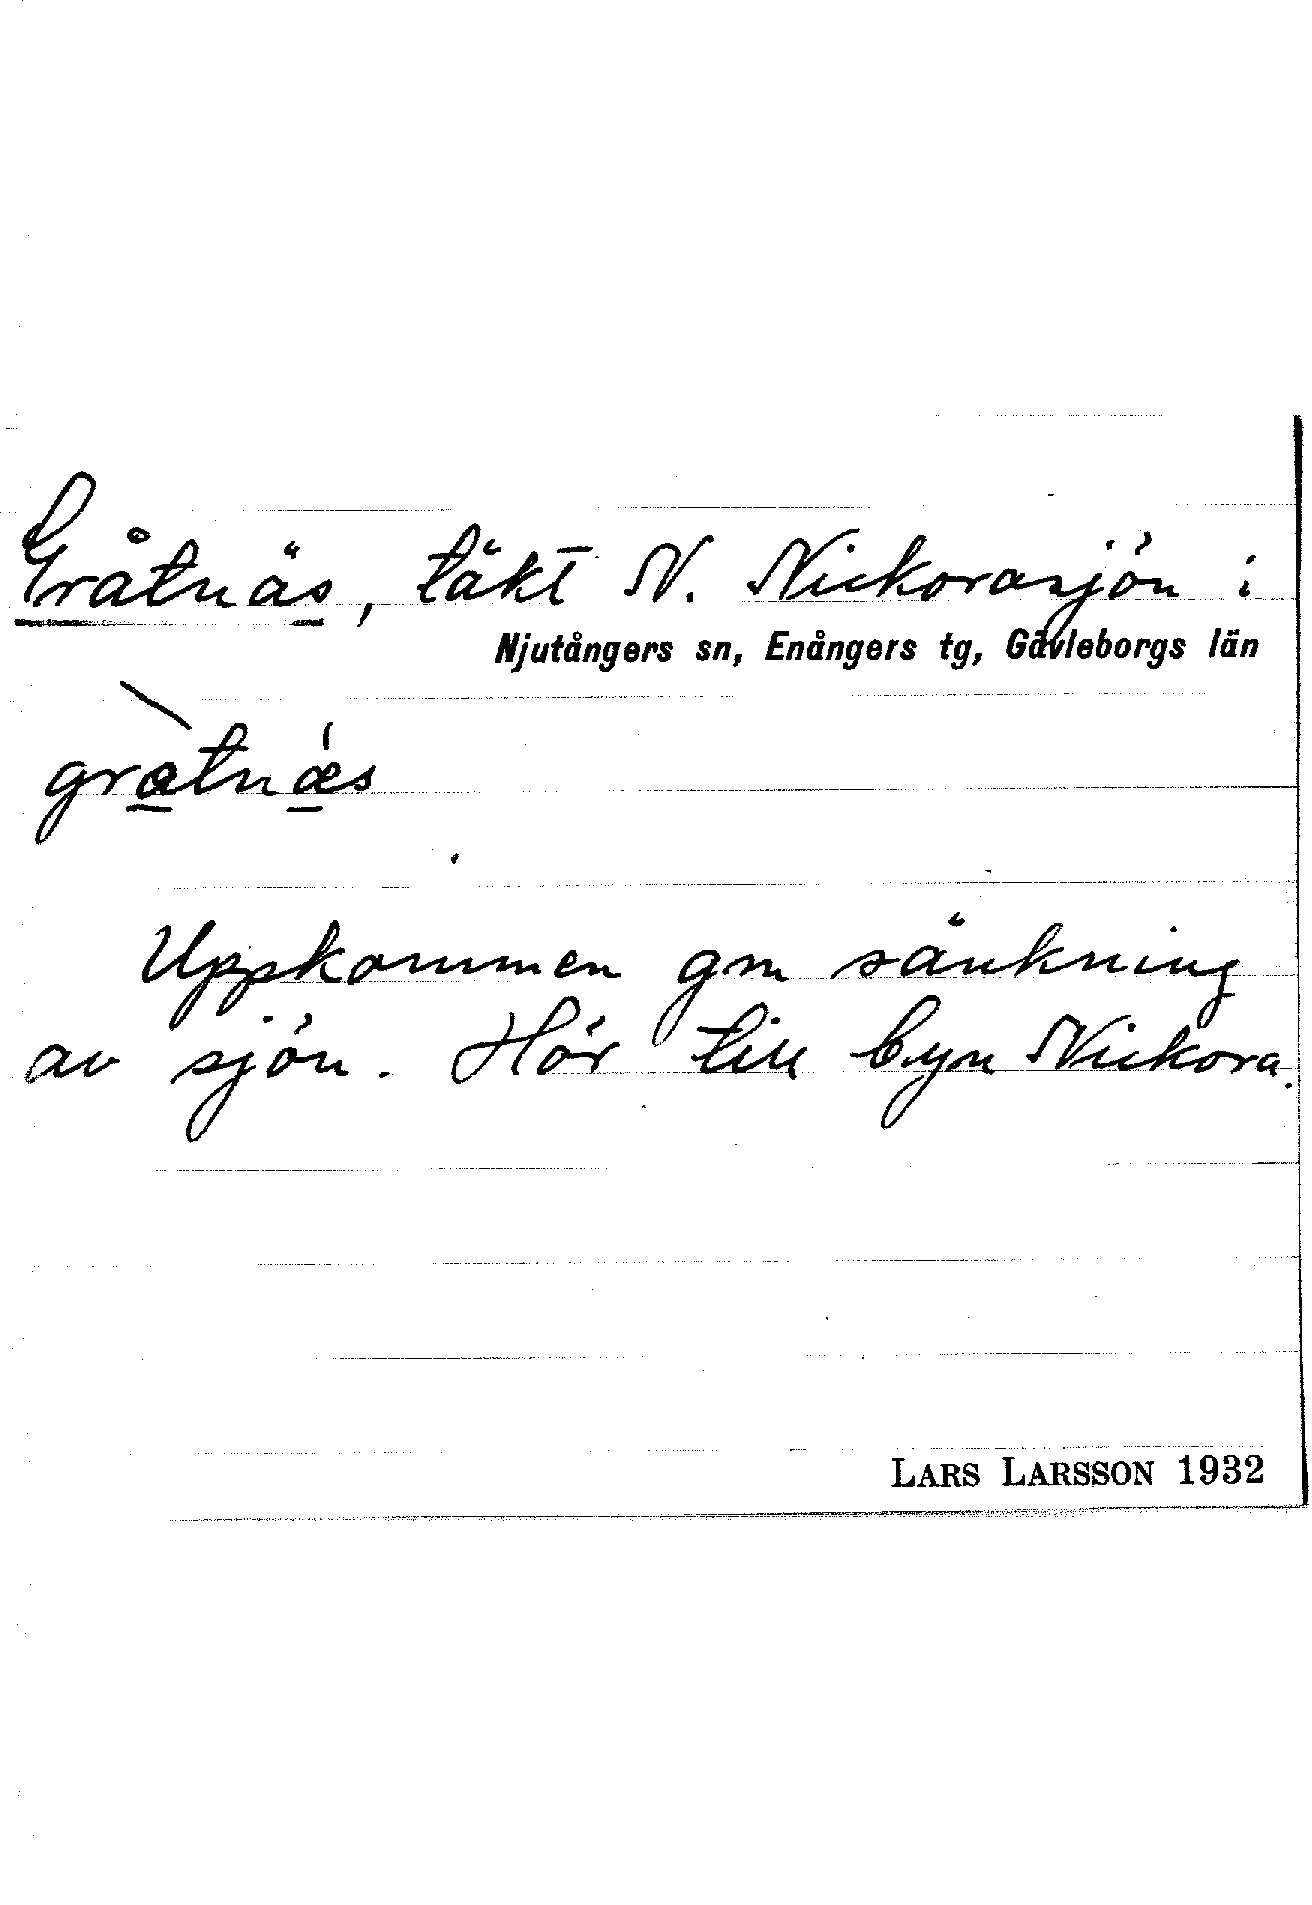 Gråtnäs, täkt N. Nickorasjön i
Njutångers sn, Enångers tg, Gävleborgs län
gràtnǽs
Uppkommen gm sänkning
av sjön. Hör till byn Nickora.
LARS LARSSON 1932